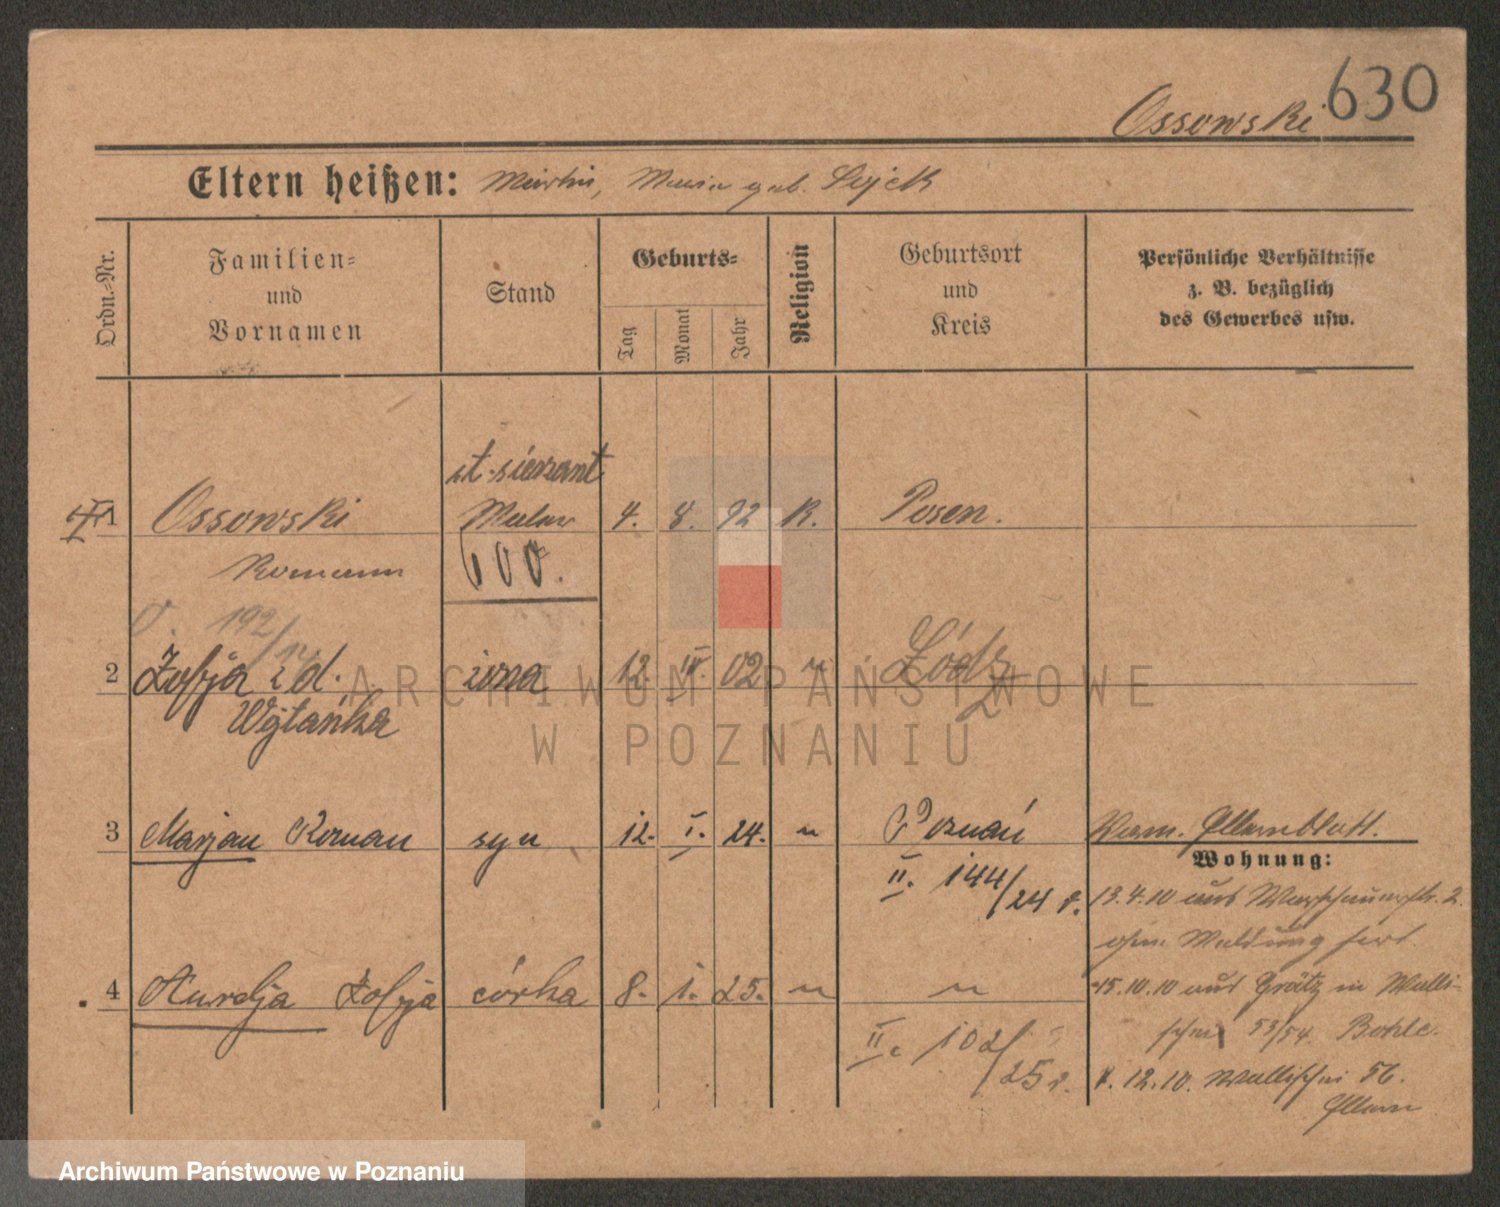 630
Ossowski
Eltern heißen: Martin, Maria geb.
Ordn.=Nr.
Familien= und Vornamen
Stand
Geburts=
Tag
Monat
Jahr
Religion
Geburtsort und Kreis
Persönliche Verhältnisse
z. B. bezüglich
des Gewerbes usw.
st. sierzant
1 Ossowski Maler 4. 8. 92 K. Posen.
Romann 600.
192/
2 Zofja z d. żona 12. IV. 02 " Łódź
Wojtańka
3 Marjan Roman syn 12. I. 24. " Poznań Vern. Elternblatt.
Wohnung:
II. 144/24 r.
13.4.10 aus Warschauerstr. 2.
ohne Meldung fort.
4 Aurelja Zofja córka 8. 1. 25. " "
15.10.10 aus Grätz in Walli-
schei 53/54. Bohle.
II. 102/25 r.
1.12.10. Wallischei 56.
Eltern
ARCHIWUM PAŃSTWOWE
W POZNANIU
Archiwum Państwowe w Poznaniu